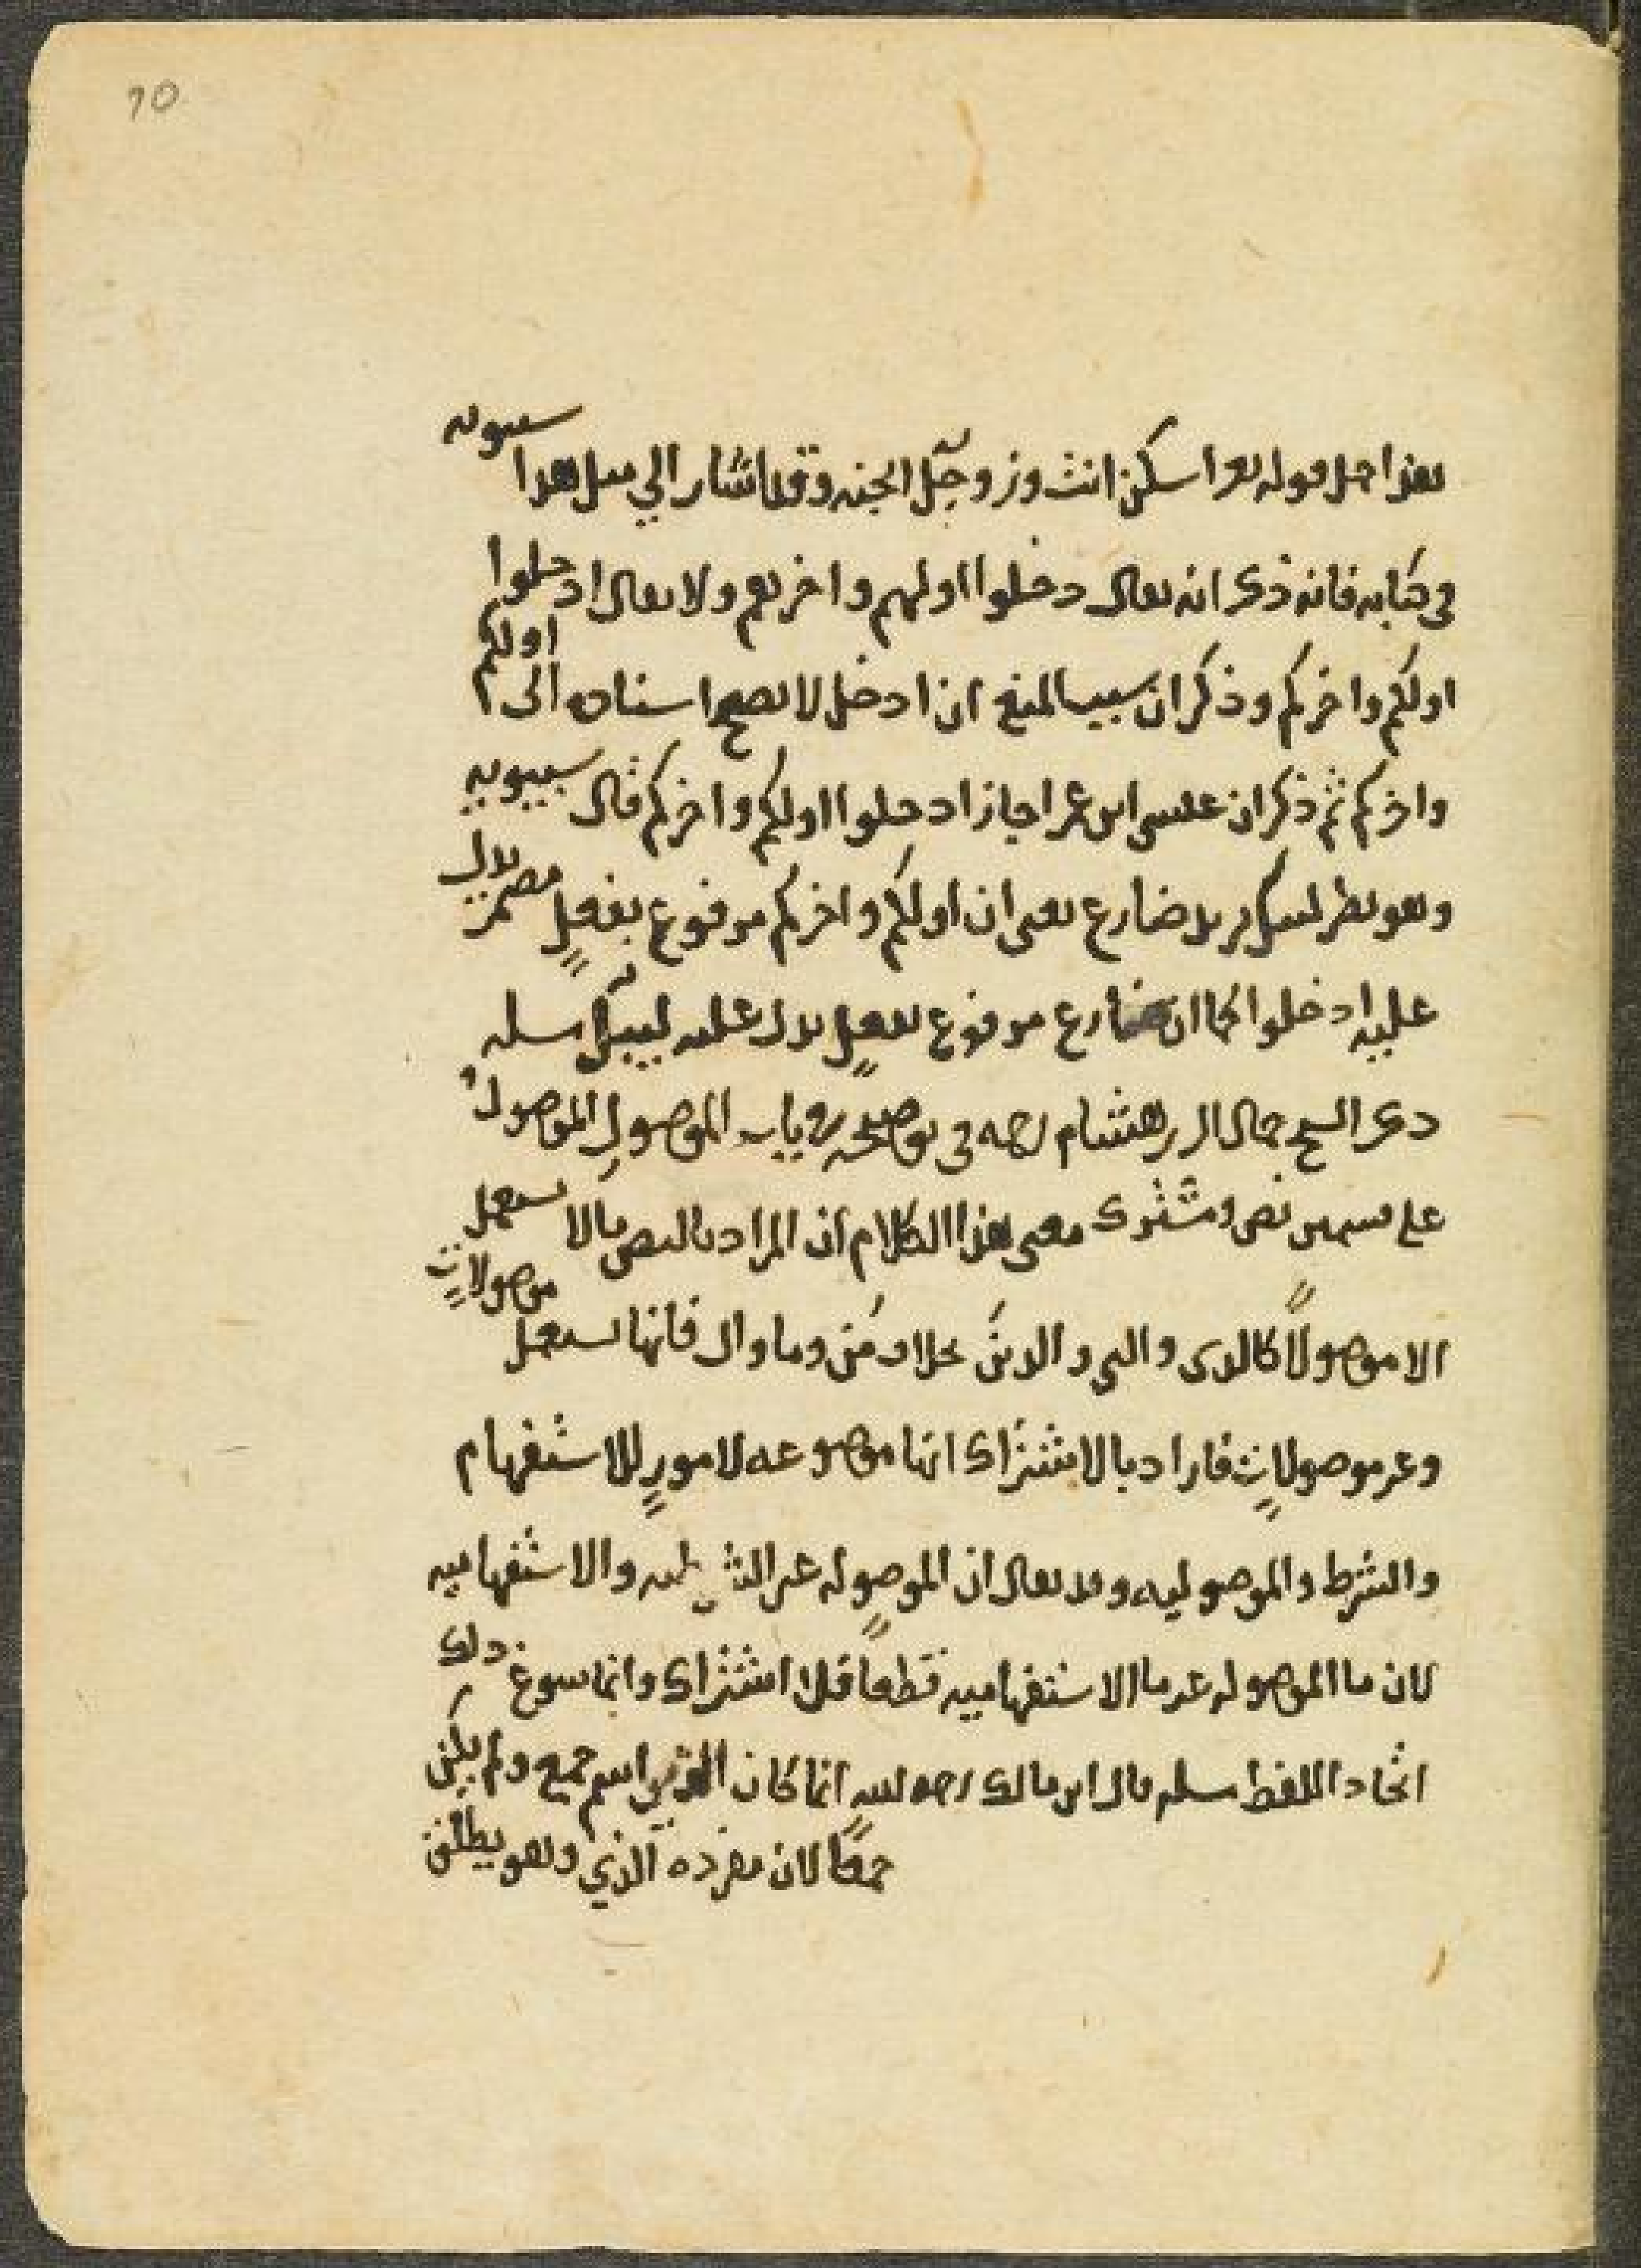 10
هذا حمل قوله تعالى اسكن انت وزوجك الجنه وقد اشار الي مثل هذا سيبويه
في كتابه فانه ذكر انه يقال دخلوا اولهم واخرهم ولا يقال ادخلوا
اولكم واخركم وذكر ان سبب المنع ان ادخل لا يصح اسناده الى اولكم
واخركم ثم ذكر ان عيسى ابن عمر اجاز ادخلوا اولكم واخركم قال سيبويه
وهو نظير ليبك يزيد ضارع يعنى ان اولكم واخركم مرفوع بفعلٍ مضمر يدل
عليه ادخلوا كما ان ضارع مرفوع بفعلٍ يدل عليه ليبك مسئله
ذكر الشيخ جمال الدين هشام رحمه في توضيحه في باب الموصولِ الموصول
على قسمين نص ومشترك معنى هذا الكلام ان المراد بالنص ما لا يستعمل
الا موصولاً كالذى والتي والذين خلاف مَن وما وال فانها تستعمل موصولاتٍ
وغير موصولاتٍ فاراد بالاشتراك انها موضوعه لامورٍ للاستفهام
والشرط والموصوليه وقد يقال ان الموصوله غير الشرطيه والاستفهاميه
لان ما الموصوله غير ما الاستفهاميه قطعاً فلا اشتراك وانما سوغ ذلك
اتحاد اللفظ مسئله قال ابن مالك رحمه الله انما كان الذين اسم جمع ولم يكن
جمعًا لان مفرده الذي وهو يطلق